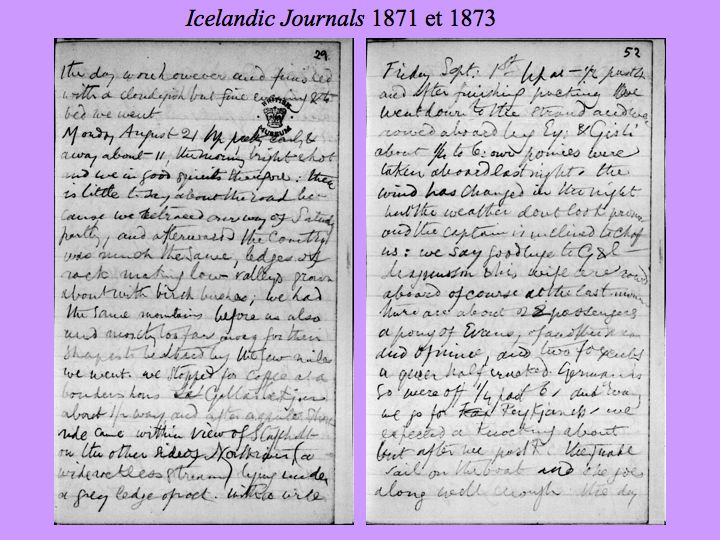 Icelandic Journals 1871 et 1873
29
the day wore however and finished
with a cloudyish but fine evening & to
bed we went
BRITISH
MUSEUM
Monday August 21 Up pretty early &
away about 11, the morning bright & hot
and we in good spirits therefore: there
is little to say about the road be-
cause we retraced our way of Saturday
partly, and afterwards the country
was much the same, ledges of
rock making low valleys grown
about with birch bushes; we had
the same mountains before us also
and mostly too far away for their
shapes to be altered by the few miles
we went. we stopped for coffee at a
bonder's house
about ½ way and after a
ride came within view of
on the other side of (a
wide reckless stream) lying under
a grey ledge of rock. with a wide
52
Friday Sept: 1st Up at
and after finishing packing &c we
went down to the strand and were
rowed aboard by Ey: & Gisli
about ¼ to 6: our ponies were
taken aboard last night. the
wind has changed in the night
but the weather dont look
and the captain is inclined to chaff
us: we say goodbye to
& his wife are
aboard of course at the last
there are about 22 passengers
a pony of Evans, of
and of mine, and two foxes
a queer half cracked German
So were off ¼ past 6, and away
we go for Reykjanes, we
expected a knocking about
but after we past it they make
sail on the boat and she goes
along well enough the day